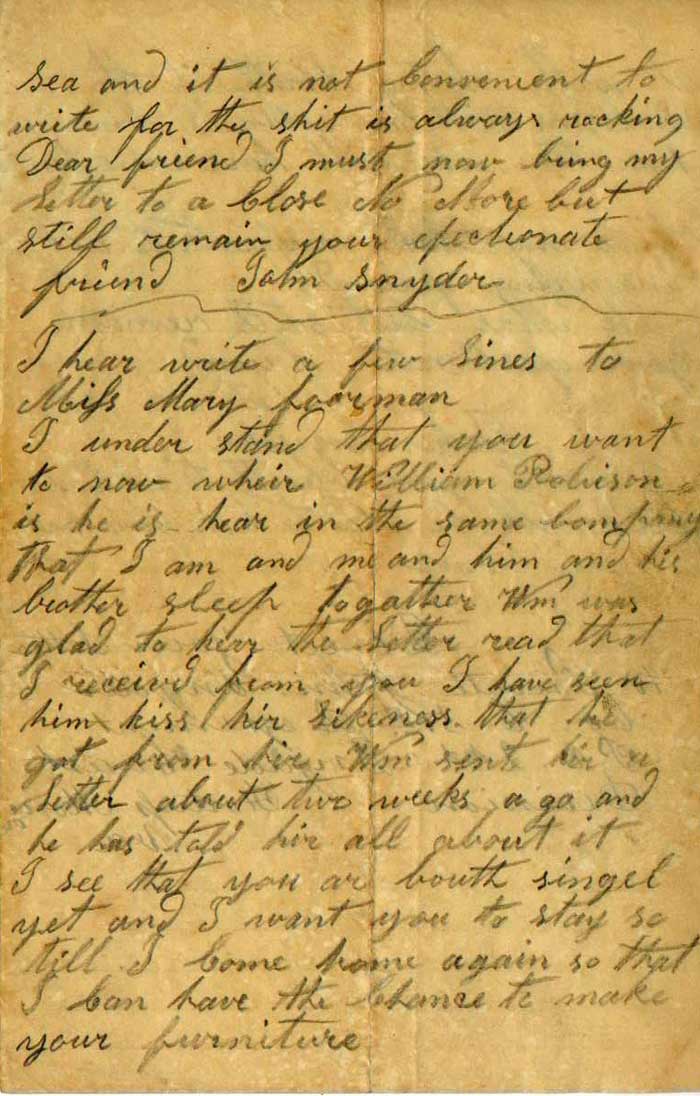 sea and it is not Convenient to
write for the shit is always rocking
Dear friend I must now bring my
Letter to a Close No More but
still remain your efectionate
friend John Snyder
I hear write a few Lines to
Miss Mary foorman
I under stand that you want
to now wheir William Robison
is he is hear in the same Company
that I am and me and him and his
brother sleep togather Wm was
glad to hear the Letter read that
I receivd from you I have seen
him kiss hir Likeness that he
got from hir Wm sent hir a
Letter about two weeks a go and
he has told hir all about it
I see that you ar bouth singel
yet and I want you to stay so
till I Come home again so that
I Can have the Chance to make
your furniture